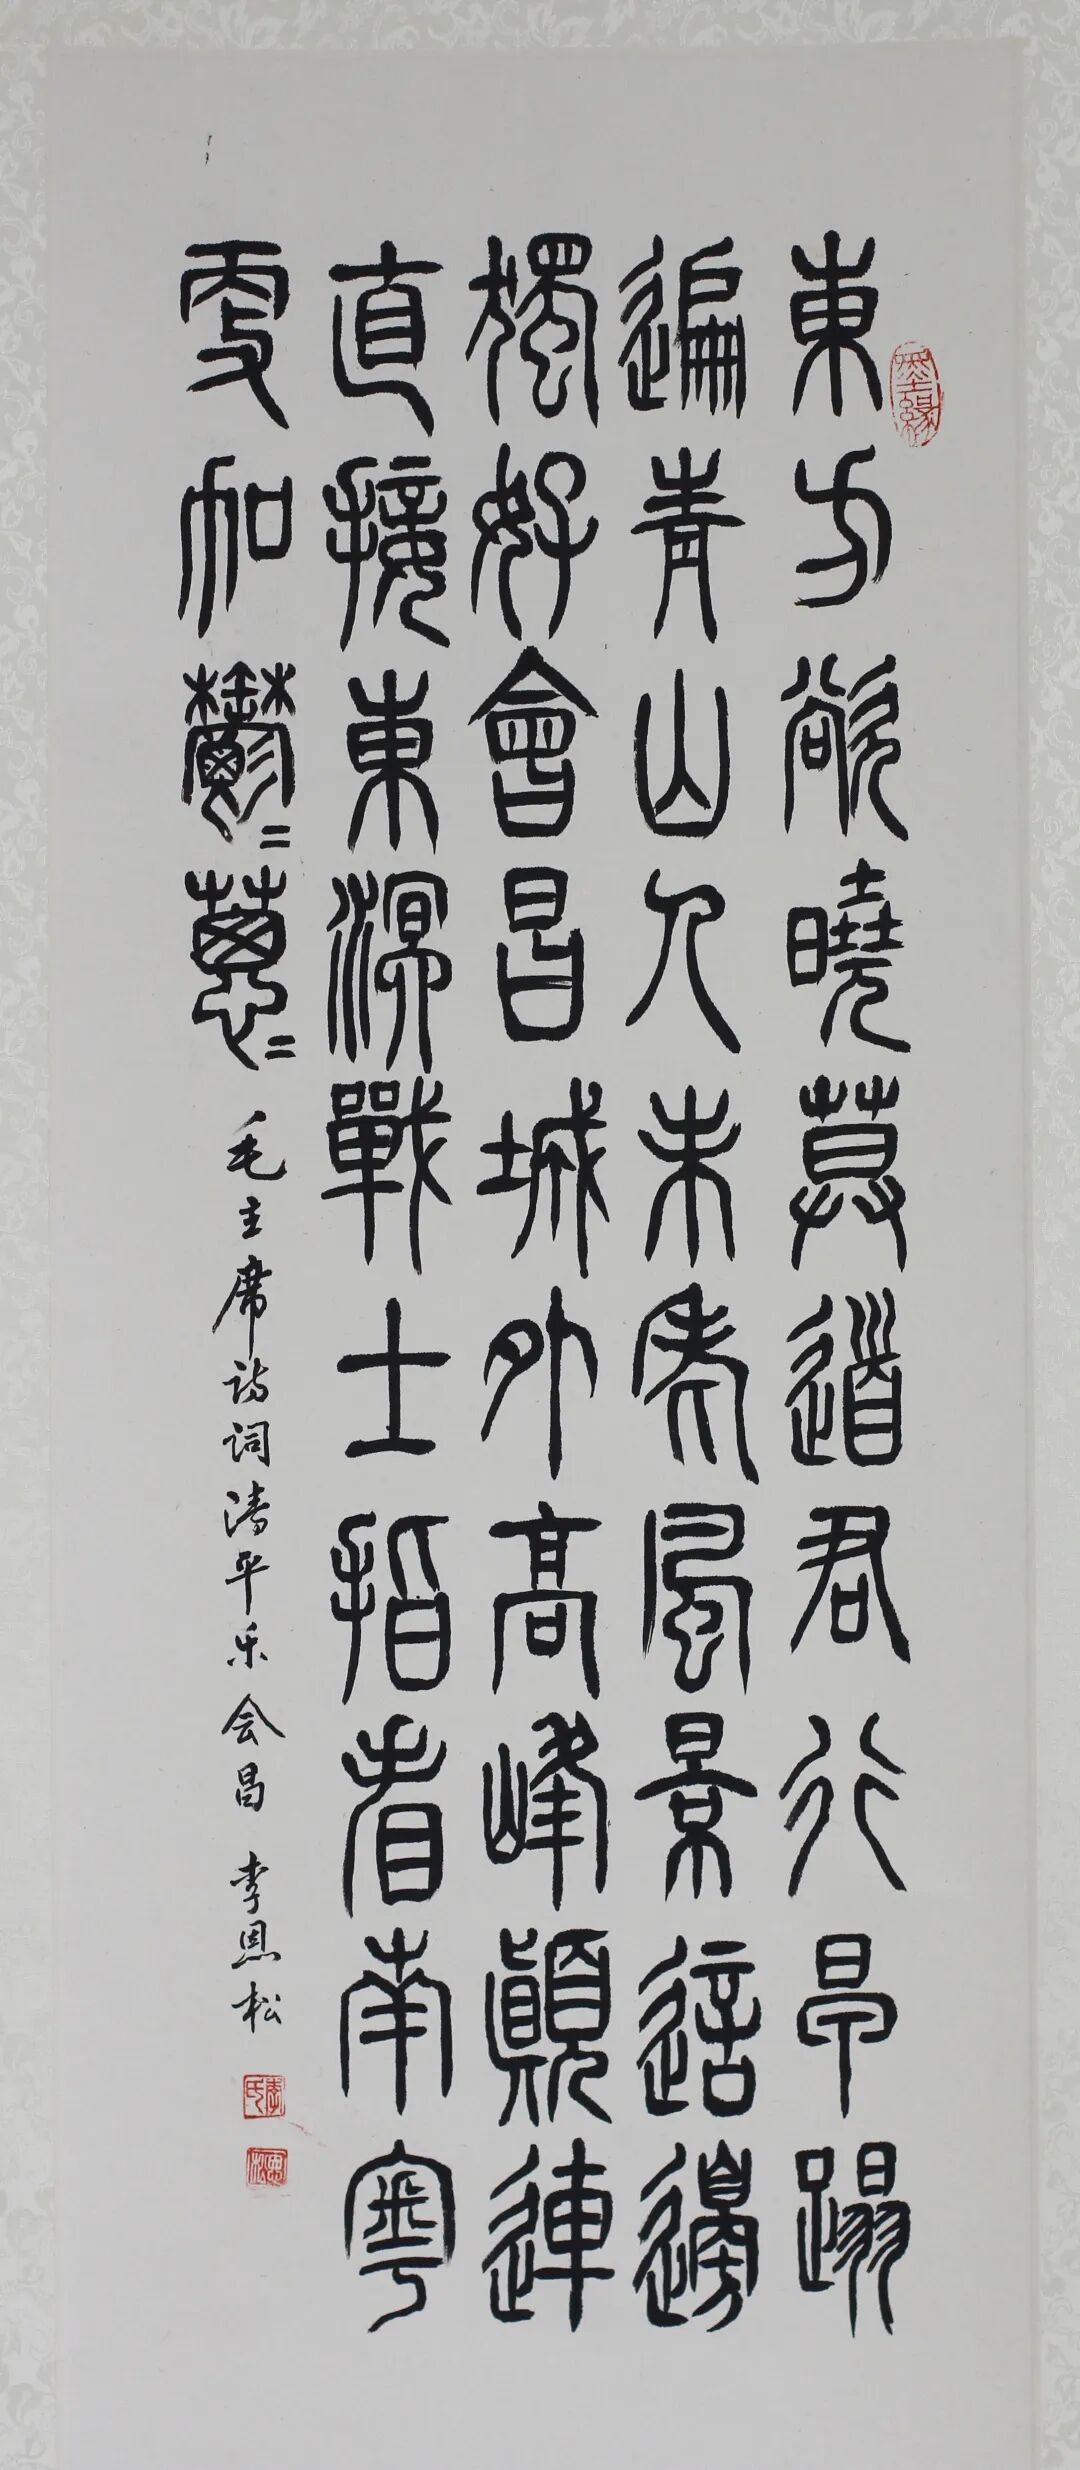 墨緣
東方欲曉莫道君行早蹋
遍青山人未老風景這邊
獨好會昌城外高峰顛連
直接東溟戰士指看南粵
更加鬱〻蔥〻
毛主席诗词清平乐会昌 李恩松
李氏
恩松